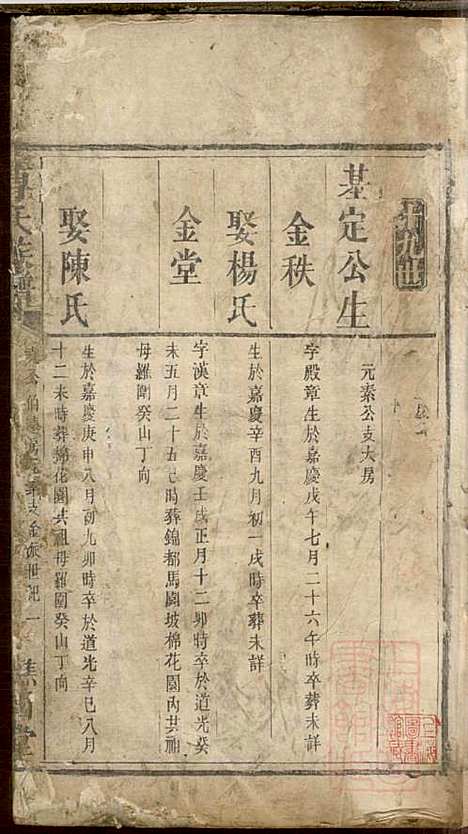 十九世
元素公支大房
基定公生
金秩
字殿章生於嘉慶戊午七月二十六午時卒葬未詳
娶楊氏
生於嘉慶辛酉九月初一戌時卒葬未詳
金堂
字漢章生於嘉慶壬戌正月十二卯時卒於道光癸
未五月二十五巳時葬錦都馬園坡棉花園內共祖
母羅剛癸山丁向
娶陳氏
生於嘉慶庚申八月初九卯時卒於道光辛巳八月
十二未時葬棉花園共祖母羅剛癸山丁向
氏族譜
世記一
堂